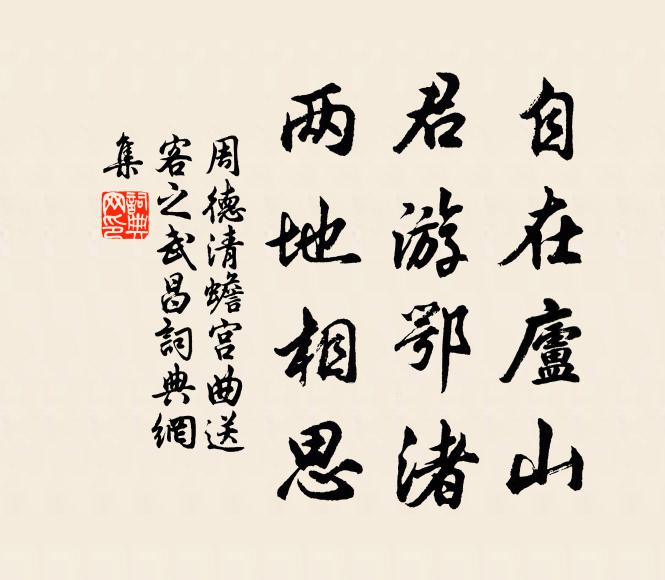 自在廬山
君游鄂渚
两地相思
周德清蟾宫曲送
客之武昌詞典網
集
詞典
网印